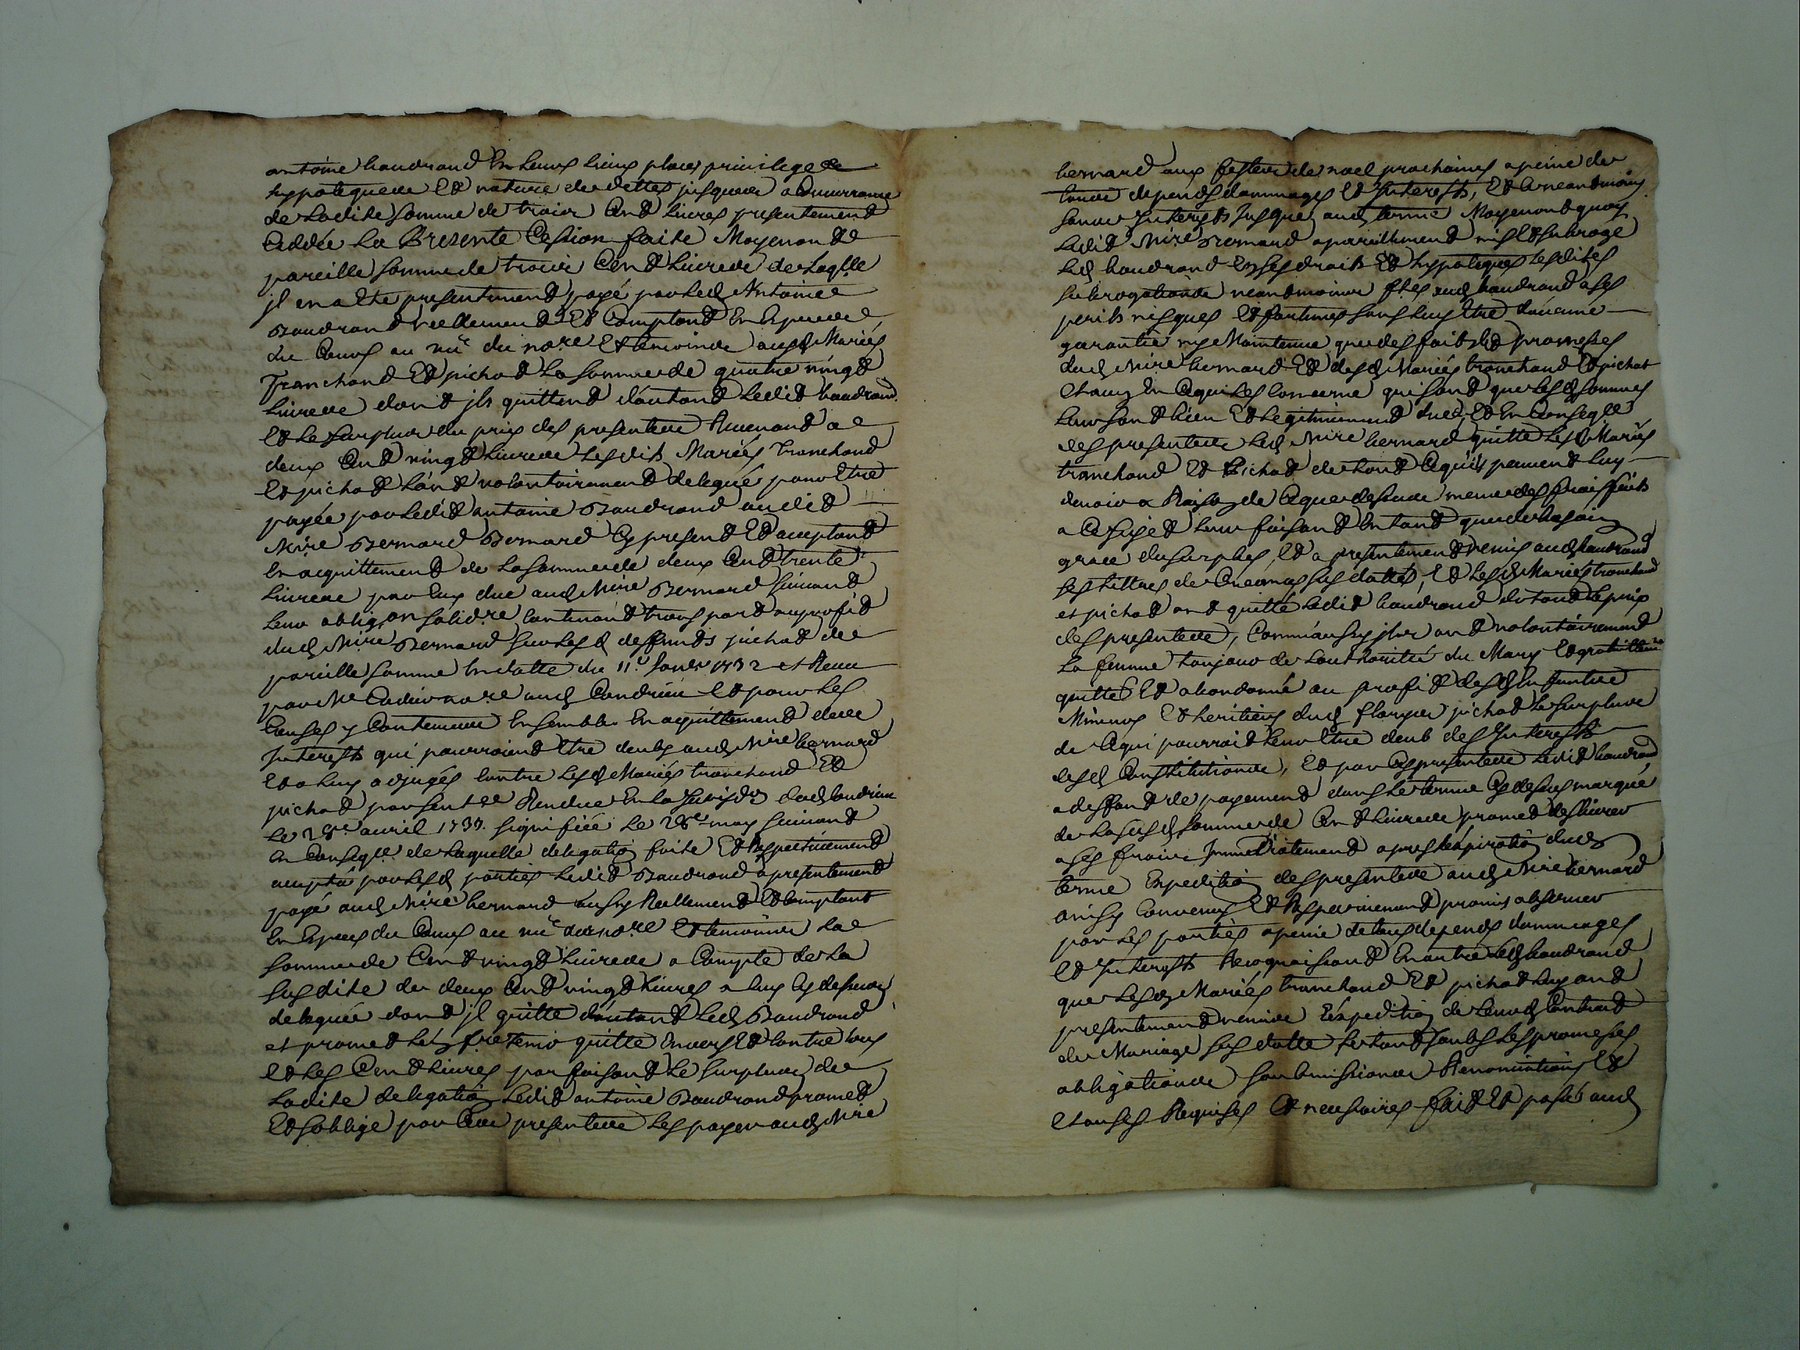 antoine baudrand En Leurs lieux places privilege et
hypotequeue Et nature de dettes jusques a concurranse
de Ladite somme de trois Cent Livres presentement
Cedée La Presente Cession faite Moyenant
pareille somme de trois Cent Livres de Laqlle
jl en a Eté presentement payé par Led Antoine
Baudrand reellement Et Comptant En Especes
du Cours au vu du nore Et temoins auxd Mariés
Tranchand Et pichat La somme de quatre vingt
Livres dont jls quittent d'autant Ledit baudrand
Et Le surplus du prix des presentes Revenant a
deux Cent vingt Livres Lesdits Mariés Tranchand
Et pichat L'ont volontairement delegué pour Etre
payée par Ledit antoine Baudrand audit
Mire Bernard Bernard Cy present Et acceptant
En acquittement de La somme de deux Cent trente
Livres par Eux due aud Mire Bernard suivant
Leur obligon solidre Contenant transport au profit
dud Mire Bernard sur Lesd deffunts pichat de
pareille somme En datte du 11e 1732 et Receu
par Me nore aud Condrieu Et pour Les
Causes y Contenues Ensemble En acquittement des
Interests qui pourroient Etre deubs aud Mire bernard
Et a Luy adjugés Contre Lesd Mariés tranchand Et
pichat par sentce Rendue En La Jurisdon dud Condrieu
Le 28e avril 1737 signifiée Le 28e may suivant
En Conseqce de Laquelle delegation faite Et Respectivement
accepté par Lesd parties Ledit Baudrand a presentement
payé aud Mire bernard aussy Reellement Et Comptant
En Especes du Cours au vu du nore Et temoins La
somme de Cent vingt Livres a Compte de La
susdite de deux Cent vingt Livres a Luy Cy dessus
deleguée dont jl quitte d'autant Led Baudrand
et promet L'en fre Tenir quitte Envers Et Contre tous
Et Les Cent Livres parfaisant Le surplus de
Ladite delegation Ledit antoine Baudrand promet
Et s'oblige par Ces presentes Les payer aud Mire
bernard aux festes de noel prochaines a peine de
tous depends dommages Et Interests, Et Ce neantmoins
sans Interests jusques aud terme Moyenant quoy
Ledit Mire Bernard a pareillement mis Et subrogé
Led baudrand En ses droits Et hypoteques Lesdites
subrogations neantmoins faites aud baudrand a ses
perils risques Et fortunes sans Luy Etre d'aucune
garantie ny Maintenue que des faits Et promesses
dud Mire bernard Et desd Mariés tranchand Et pichat
Chacun En Ce qui Les Concerne qui sont que Lesd sommes
Leur sont bien Et Legitimement dues, Et En Conseqce
des presentes Led Mire bernard quitte Lesd Mariés
tranchand Et Pichat de tout Ce qu'ils peuvent Luy
devoir a Raison de Ce que dessus meme des frais faits
a Ce sujet Leur faisant En tant que de besoin
grace du surplus, Et a presentement remis aud baudrand
Ses tiltres de Creances susdattés, Et Lesd Mariés tranchand
et pichat ont quitté Ledit baudrand de tout Le prix
des presentes, Comm'aussy jls ont volontairement
La femme toujours de L'authorité du Mary Et
quitté Et abandonné au profit desd
Mineurs Et heritiers dud pichat Le surplus
de Ce qui pourroit Leur Etre deub des Interests
desd Constitutions, Et par Ces presentes Ledit baudrand
a deffaut de payement dans Le terme Cy dessus marqué
de La susd somme de Cent Livres promet deslivrer
a ses frais Immediatement apres L'expiration dud
terme Expedition des presentes aud Mire bernard
ainsy Convenus Et Respectivement promis observer
par Les parties a peine de tous depends dommages
Et Interests Recognoissant En outre Led baudrand
que Lesd Mariés tranchand Et pichat Luy ont
presentement remis L'expedition de Leurd Contract
de Mariage susdatté Le tout soubs Les promesses
obligations soubmissions Renonciations Et
Clauses Requises Et necessaires fait Et passé aud